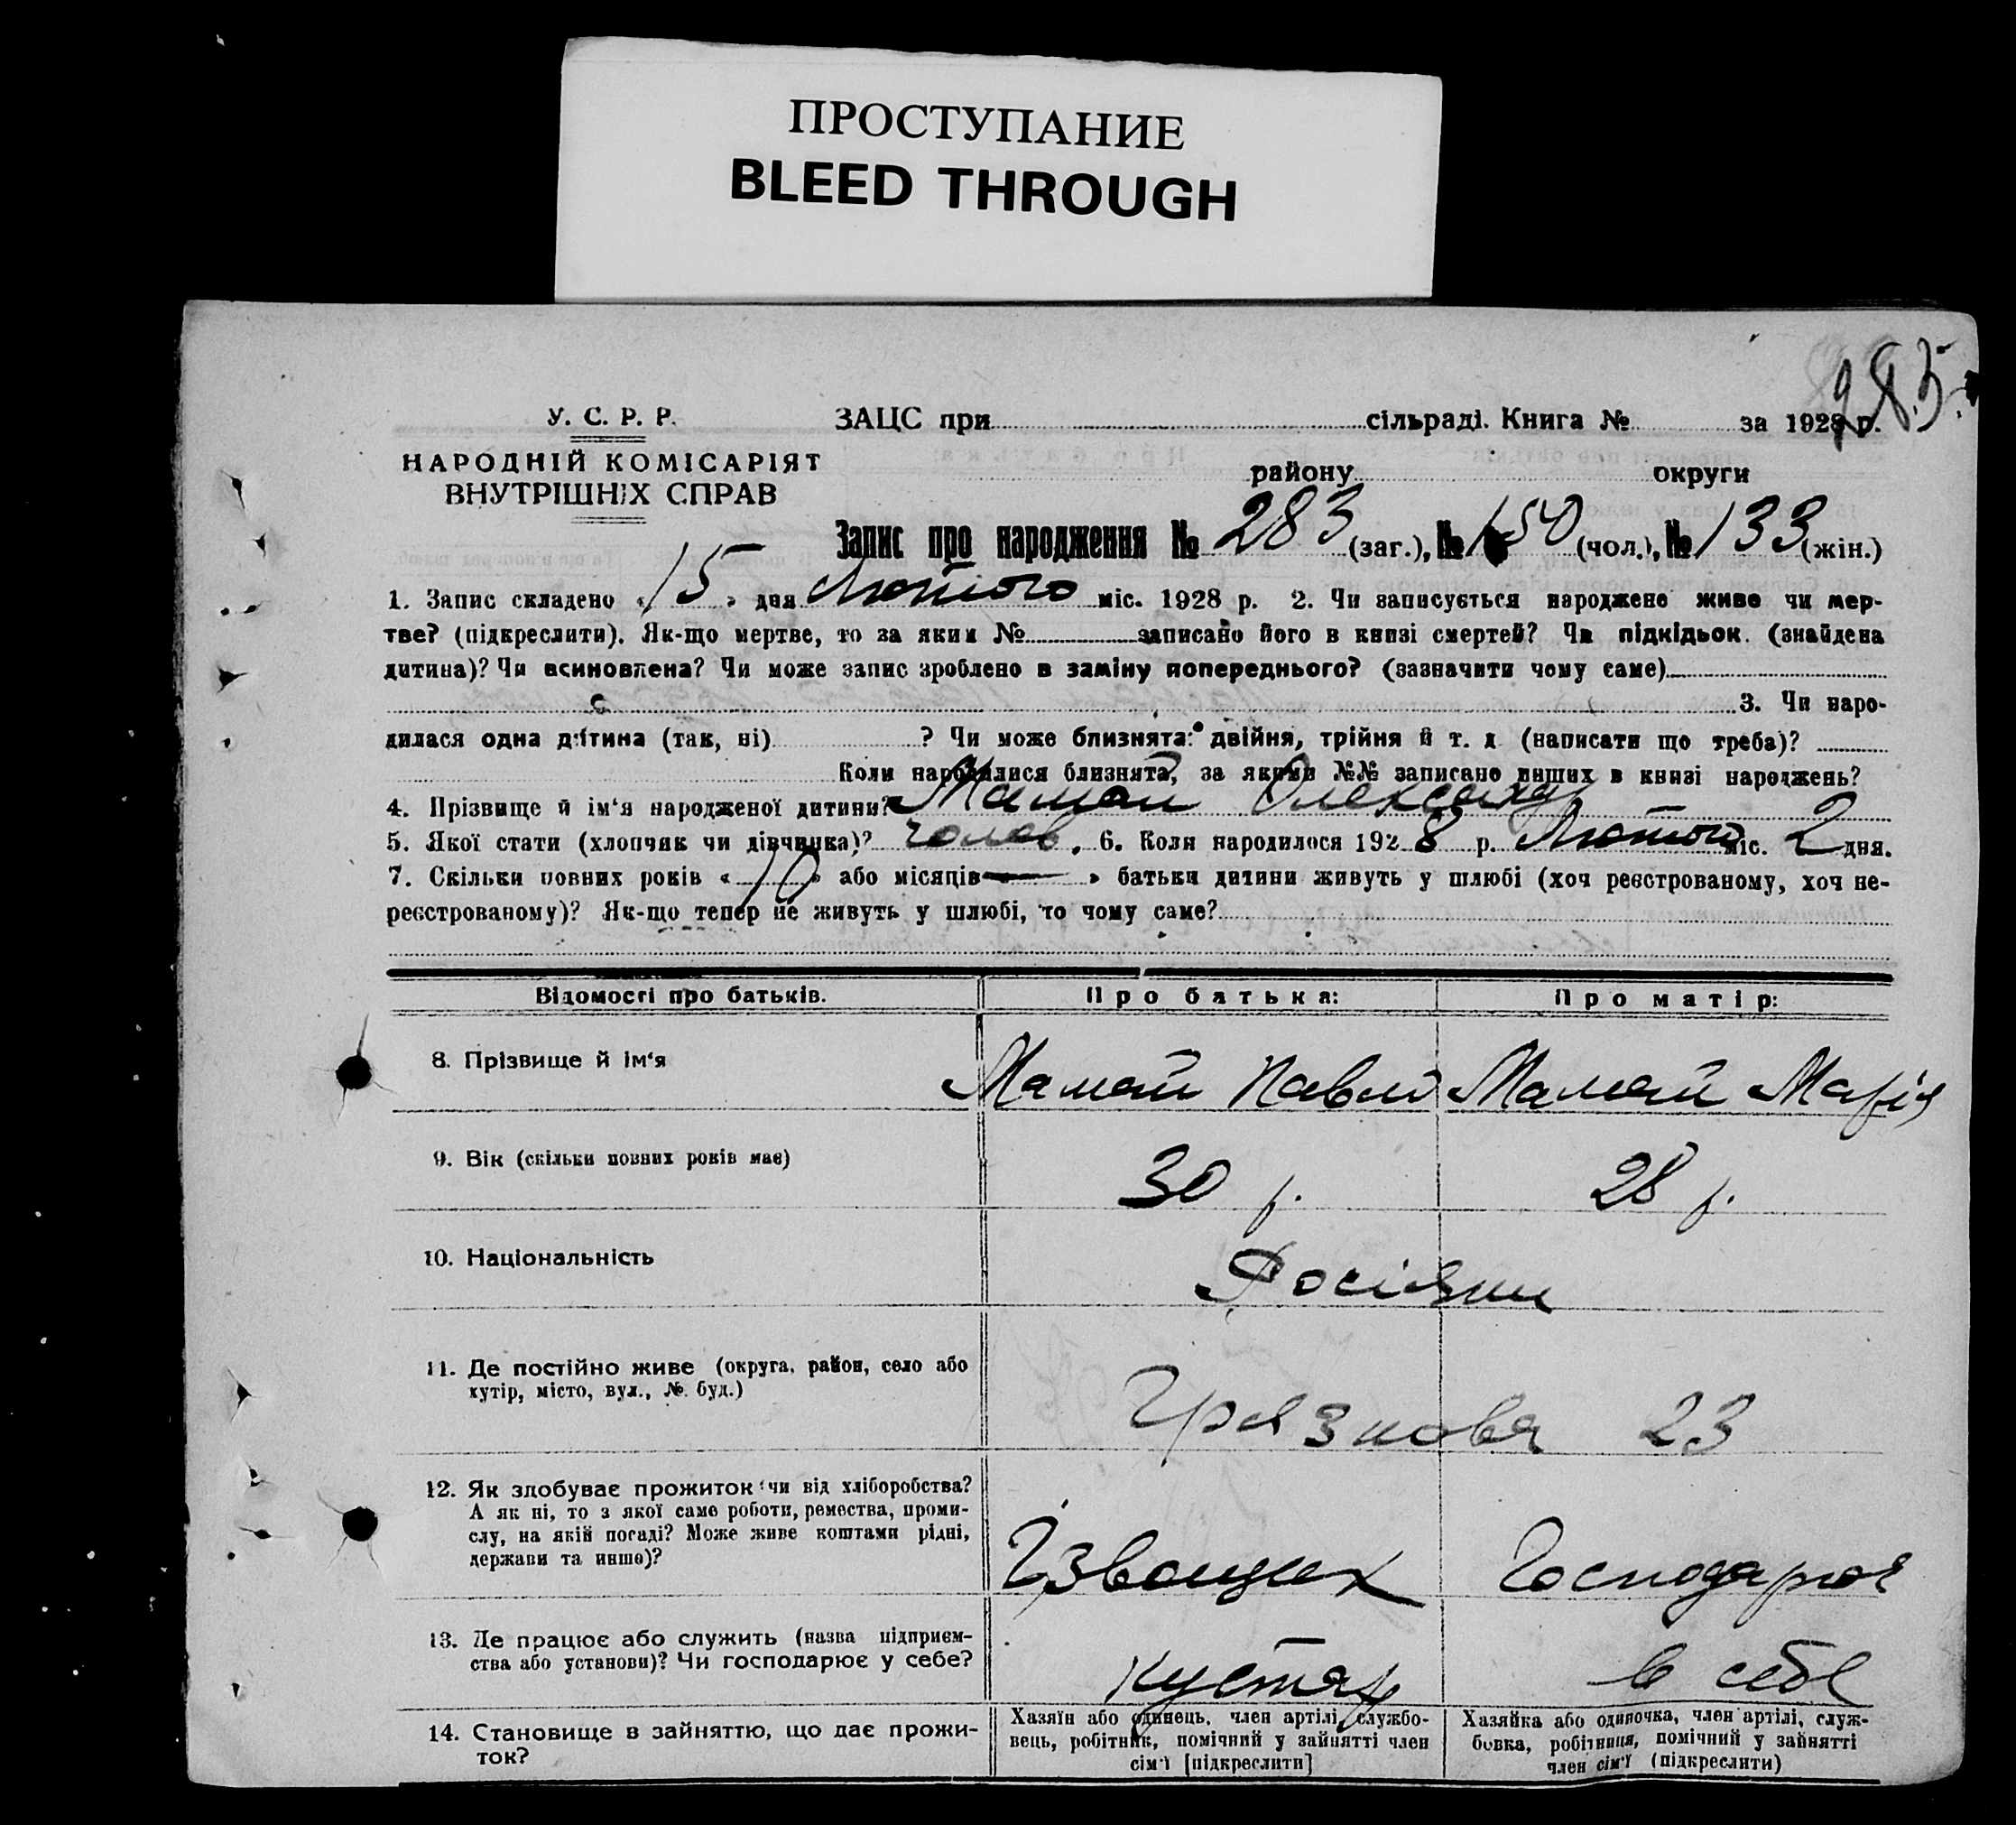 ПРОСТУПАНИЕ
BLEED THROUGH
985
У. С. Р. Р.
НАРОДНІЙ КОМІСАРІЯТ
ВНУТРІШНІХ СПРАВ
ЗАЦС при сільраді. Книга № за 1928 р.
району округи
Запис про народження № 283 (заг.), № 150 (чол.), № 133 (жін.)
1. Запис складено « 15 » дня Лютого міс. 1928 р. 2. Чи записується народжене живе чи мер-
тве? (підкреслити). Як-що мертве, то за яким № записано його в книзі смертей? Чи підкідьок. (знайдена
дитина)? Чи всиновлена? Чи може запис зроблено в заміну попереднього? (зазначити чому саме)
3. Чи наро-
дилася одна дитина (так, ні) ? Чи може близнята: двійня, трійня й т. д (написати що треба)?
Коли народилися близнята, за якими №№ записано инших в книзі народжень?
4. Прізвище й ім‘я народженої дитини? Мамай Олександ
5. Якої стати (хлопчяк чи дівчинка)? чолов. 6. Коли народилося 1928 р. Лютого міс. 2 дня.
7. Скільки повних років « 10 » або місяців — » батьки дитини живуть у шлюбі (хоч реєстрованому, хоч не-
реєстрованому)? Як-що тепер не живуть у шлюбі, то чому саме?
Відомості про батьків. Про батька: Про матір:
8. Прізвище й ім‘я Мамай Павло Мамай Марія
9. Вік (скільки повних років має) 30 р. 28 р.
10. Національність Росіяни
11. Де постійно живе (округа, район, село або
хутір, місто, вул., №. буд.)
Грязнова 23
12. Як здобуває прожиток чи від хліборобства?
А як ні, то з якої саме роботи, ремества, проми-
слу, на якій посаді? Може живе коштами рідні,
держави та инше)?
Ізвощик Господарює
13. Де працює або служить (назва підприєм-
ства або установи)? Чи господарює у себе?
кустяр в себе
14. Становище в зайняттю, що дає прожи-
ток?
Хазяїн або одинець, член артілі, службо-
вець, робітник, помічний у зайнятті член
сім‘ї [підкреслити]
Хазяйка або одиночка, член артілі, служ-
бовка, робітниця, помічний у зайнятті
член сім‘ї (підкреслити)